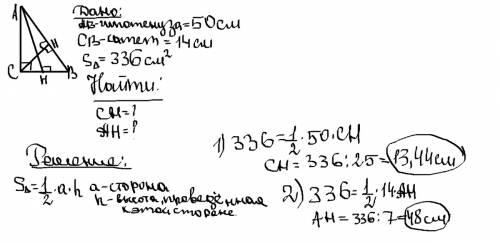 A
H
C
H
B
Дано:
AB-гипотенуза=50см
CB-катет=14см
S△=336см²
Найти:
CH=?
AH=?
Решение:
S△=1/2·a·h a-сторона
h-высота, проведённая
к этой стороне
1) 336=1/2·50·CH
CH=336:25=13,44см
2) 336=1/2·14·AH
AH=336:7=48см